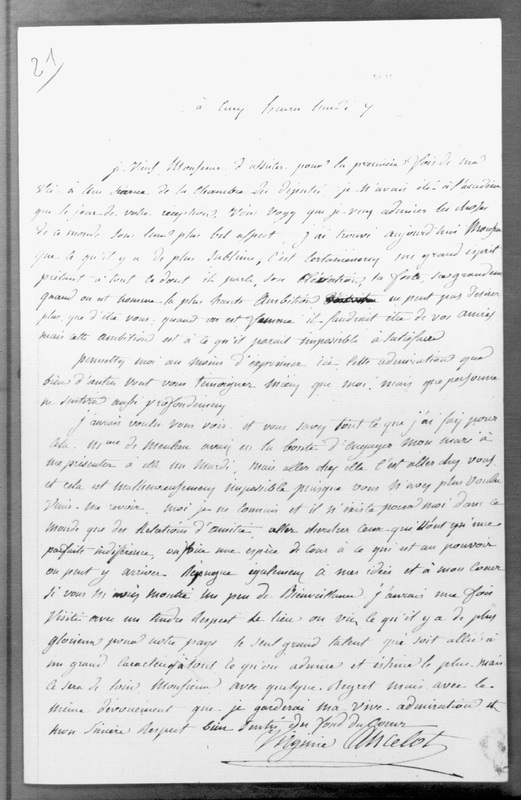 21
à cinq heures lundi 7
je viens, Monsieur, d'assister pour la première fois de ma
vie à une séance de la Chambre des députés je n'avais été à l'académie
que le jour de votre réception. Vous voyez que je veux admirer les choses
de ce monde sous leur plus bel aspect. J'ai trouvé aujourd'hui Monsieur
que ce qu'il y a de plus sublime, c'est certainement un grand esprit
prêtant à tout ce dont il parle, son élévation, sa force, sa grandeur
quand on est homme la plus haute ambition ne peut pas désirer
plus que d'être vous, quand on est femme il faudrait être de vos amies
mais cette ambition est à ce qu'il parait impossible à satisfaire
permettez moi au moins d'exprimer ici cette admiration que
bien d'autres vont vous témoigner mieux que moi, mais que personne
ne sentira aussi profondément
J'aurais voulu vous voir et vous savez tout ce que j'ai fait pour
cela. Mme de avait eu la bonté d'engager mon mari à
me présenter à elle un Mardi, mais aller chez elle c'est aller chez vous
et cela est malheureusement impossible puisque vous n'avez plus voulu
me revoir. moi je ne connais et il n'existe pour moi dans ce
monde que des relations d'amitié aller chercher ceux qui n'ont qu'une
parfaite indifférence, une espèce de cour à ce qui est au pouvoir
ou peut y arriver répugne également à mes idées et à mon cœur
si vous m'aviez montré un peu de Bienveillance j'aurais une fois
visité avec un tendre respect ce lieu où vit ce qu'il y a de plus
glorieux pour notre pays le seul grand talent qui soit allié à
un grand caractère à tout ce qu'on admire et estime le plus. mais
ce sera de loin Monsieur avec quelque regret mais avec le
même dévouement que je garderai ma vive admiration et
mon sincère respect bien du fond du cœur
Virginie Ancelot